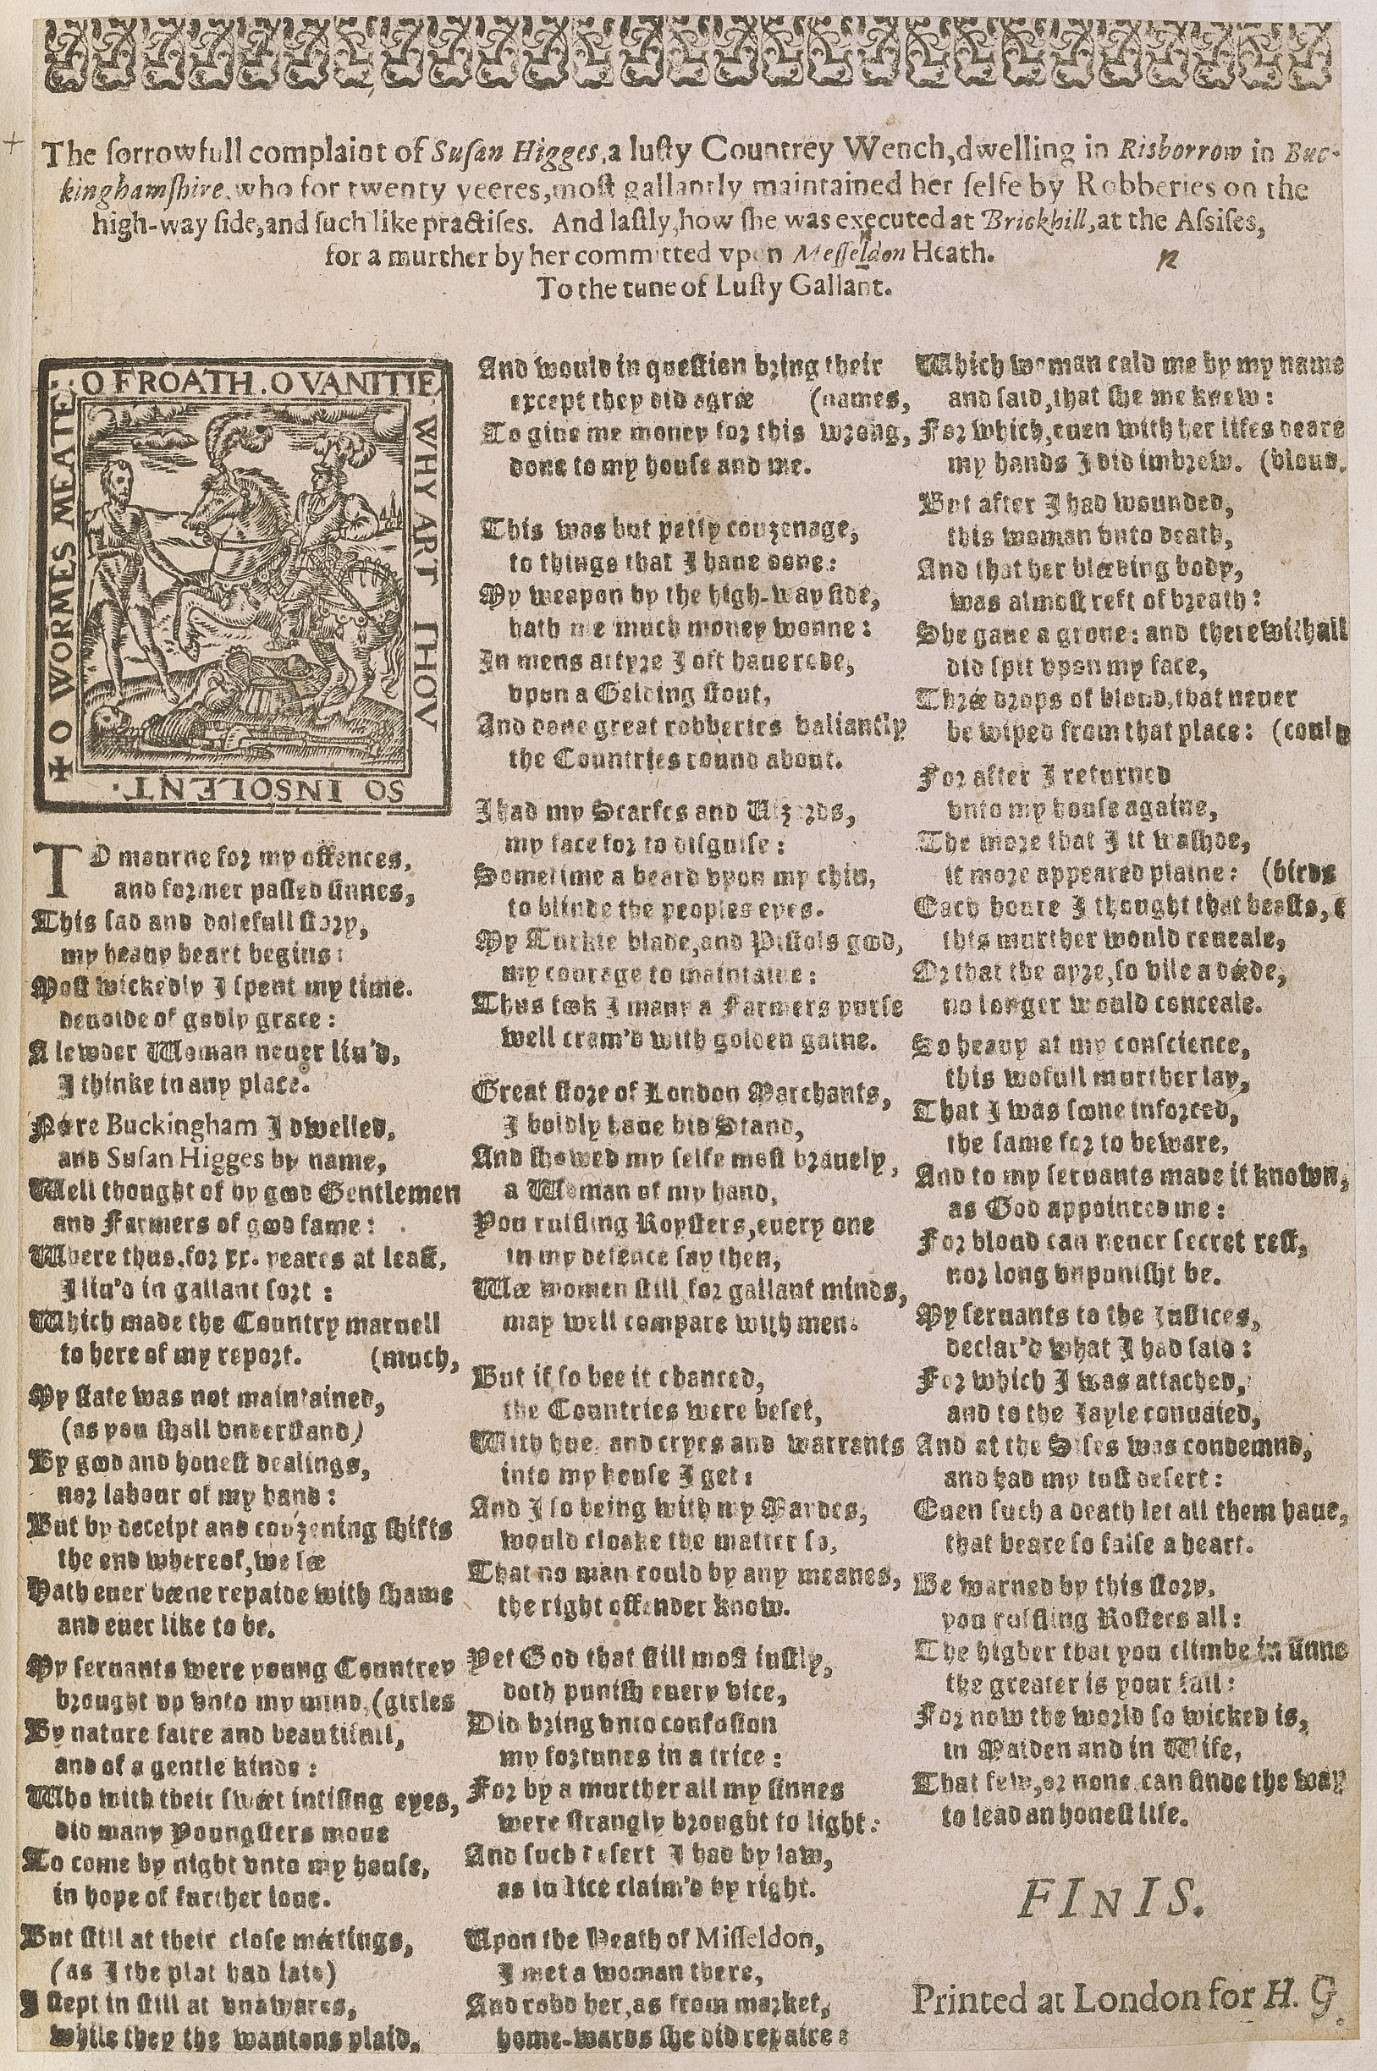 The sorrowfull complaint of Susan Higges, a lusty Countrey Wench, dwelling in Risborrow in Buc-
kinghamshire, who for twenty yeeres, most gallantly maintained her selfe by Robberies on the
high-way side, and such like practises. And lastly, how she was executed at Brickhill, at the Assises,
for a murther by her committed vpon Messeldon Heath.
To the tune of Lusty Gallant.
O FROATH. O VANITIE
WHY ART THOV
SO INSOLENT.
O WORMES MEATE
TO mourne for my offences,
and former passed sinnes,
This sad and dolefull story,
my heauy heart begins:
Most wickedly I spent my time.
deuoide of godly grace:
A lewder Woman neuer liu'd,
I thinke in any place.
Nere Buckingham I dwelled,
and Susan Higges by name,
Well thought of by good Gentlemen
and Farmers of good fame:
Where thus, for xx. yeares at least,
I liu'd in gallant sort:
Which made the Country maruell
to here of my report. (much,
My state was not maintained,
(as you shall vnderstand)
By good and honest dealings,
nor labour of my hand:
But by deceipt and couzening shifts
the end whereof, we see
Hath euer beene repaide with shame
and euer like to be.
My seruants were young Countrey
brought vp vnto my mind, (girles
By nature faire and beautifull,
and of a gentle kinde:
Who with their sweet intising eyes,
did many Youngsters moue
To come by night vnto my house,
in hope of further loue.
But still at their close meetings,
(as I the plat had laid)
I stept in still at vnawares,
while they the wantons plaid.
And would in question bring their
except they did agree (names,
To giue me money for this wrong,
done to my house and me.
This was but petty couzenage,
to things that I haue done:
My weapon by the high-way side,
hath me much money wonne:
In mens attyre I oft haue rode,
vpon a Gelding stout,
And done great robberies valiantly
the Countries round about.
I had my Scarfes and Vizards,
my face for to disguise:
Sometime a beard vpon my chin,
to blinde the peoples eyes.
My Turkie blade, and Pistols good,
my courage to maintaine:
Thus took I many a Farmers purse
well cram'd with golden gaine.
Great store of London Marchants,
I boldly haue bid Stand,
And showed my selfe most brauely,
a Woman of my hand,
You rufling Roysters, euery one
in my defence say then,
Wee women still for gallant minds,
may well compare with men.
But if so bee it chanced,
the Countries were beset,
With hue, and cryes and warrants
into my house I get:
And I so being with my Mardes,
would cloake the matter so,
That no man could by any meanes,
the right offender know.
Yet God that still most iustly,
doth punish euery vice,
Did bring vnto confusion
my fortunes in a trice:
For by a murther all my sinnes
were strangly brought to light:
And such desert I had by law,
as iustice claim'd by right.
Vpon the Heath of Misseldon,
I met a woman there,
And robd her, as from market,
home-wards she did repaire:
Which woman cald me by my name
and said, that she me knew:
For which, euen with her lifes deare
my hands I did imbrew. (bloud.
But after I had wounded,
this woman vnto death,
And that her bleeding body,
was almost reft of breath:
She gaue a grone: and therewithall
did spit vpon my face,
Three drops of bloud, that neuer
be wiped from that place: (could
For after I returned
vnto my house againe,
The more that I it washde,
it more appeared plaine: (birds
Each houre I thought that beasts, &
this murther would reueale,
Or that the ayre, so vile a deede,
no longer would conceale.
So heauy at my conscience,
this wofull murther lay,
That I was soone inforced,
the same for to bewray,
And to my seruants made it known,
as God appointed me:
For bloud can neuer secret rest,
nor long vnpunisht be.
My seruants to the Iustices,
declar'd what I had said:
For which I was attached,
and to the Iayle conuaied,
And at the Sises was condemnd,
and had my iust desert:
Euen such a death let all them haue,
that beare so false a heart.
Be warned by this story,
you rufling Rosters all:
The higher that you climbe in sinne
the greater is your fall:
For now the world so wicked is,
in Maiden and in Wife,
That few, or none can finde the way
to lead an honest life.
FINIS.
Printed at London for H. G.